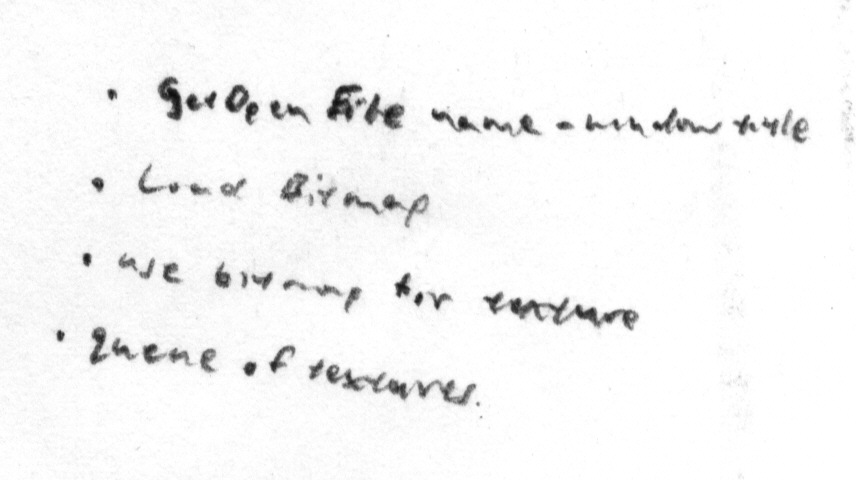 • GetOpen File name - window title
• Load Bitmap
• use bitmap for texture
• queue of textures.